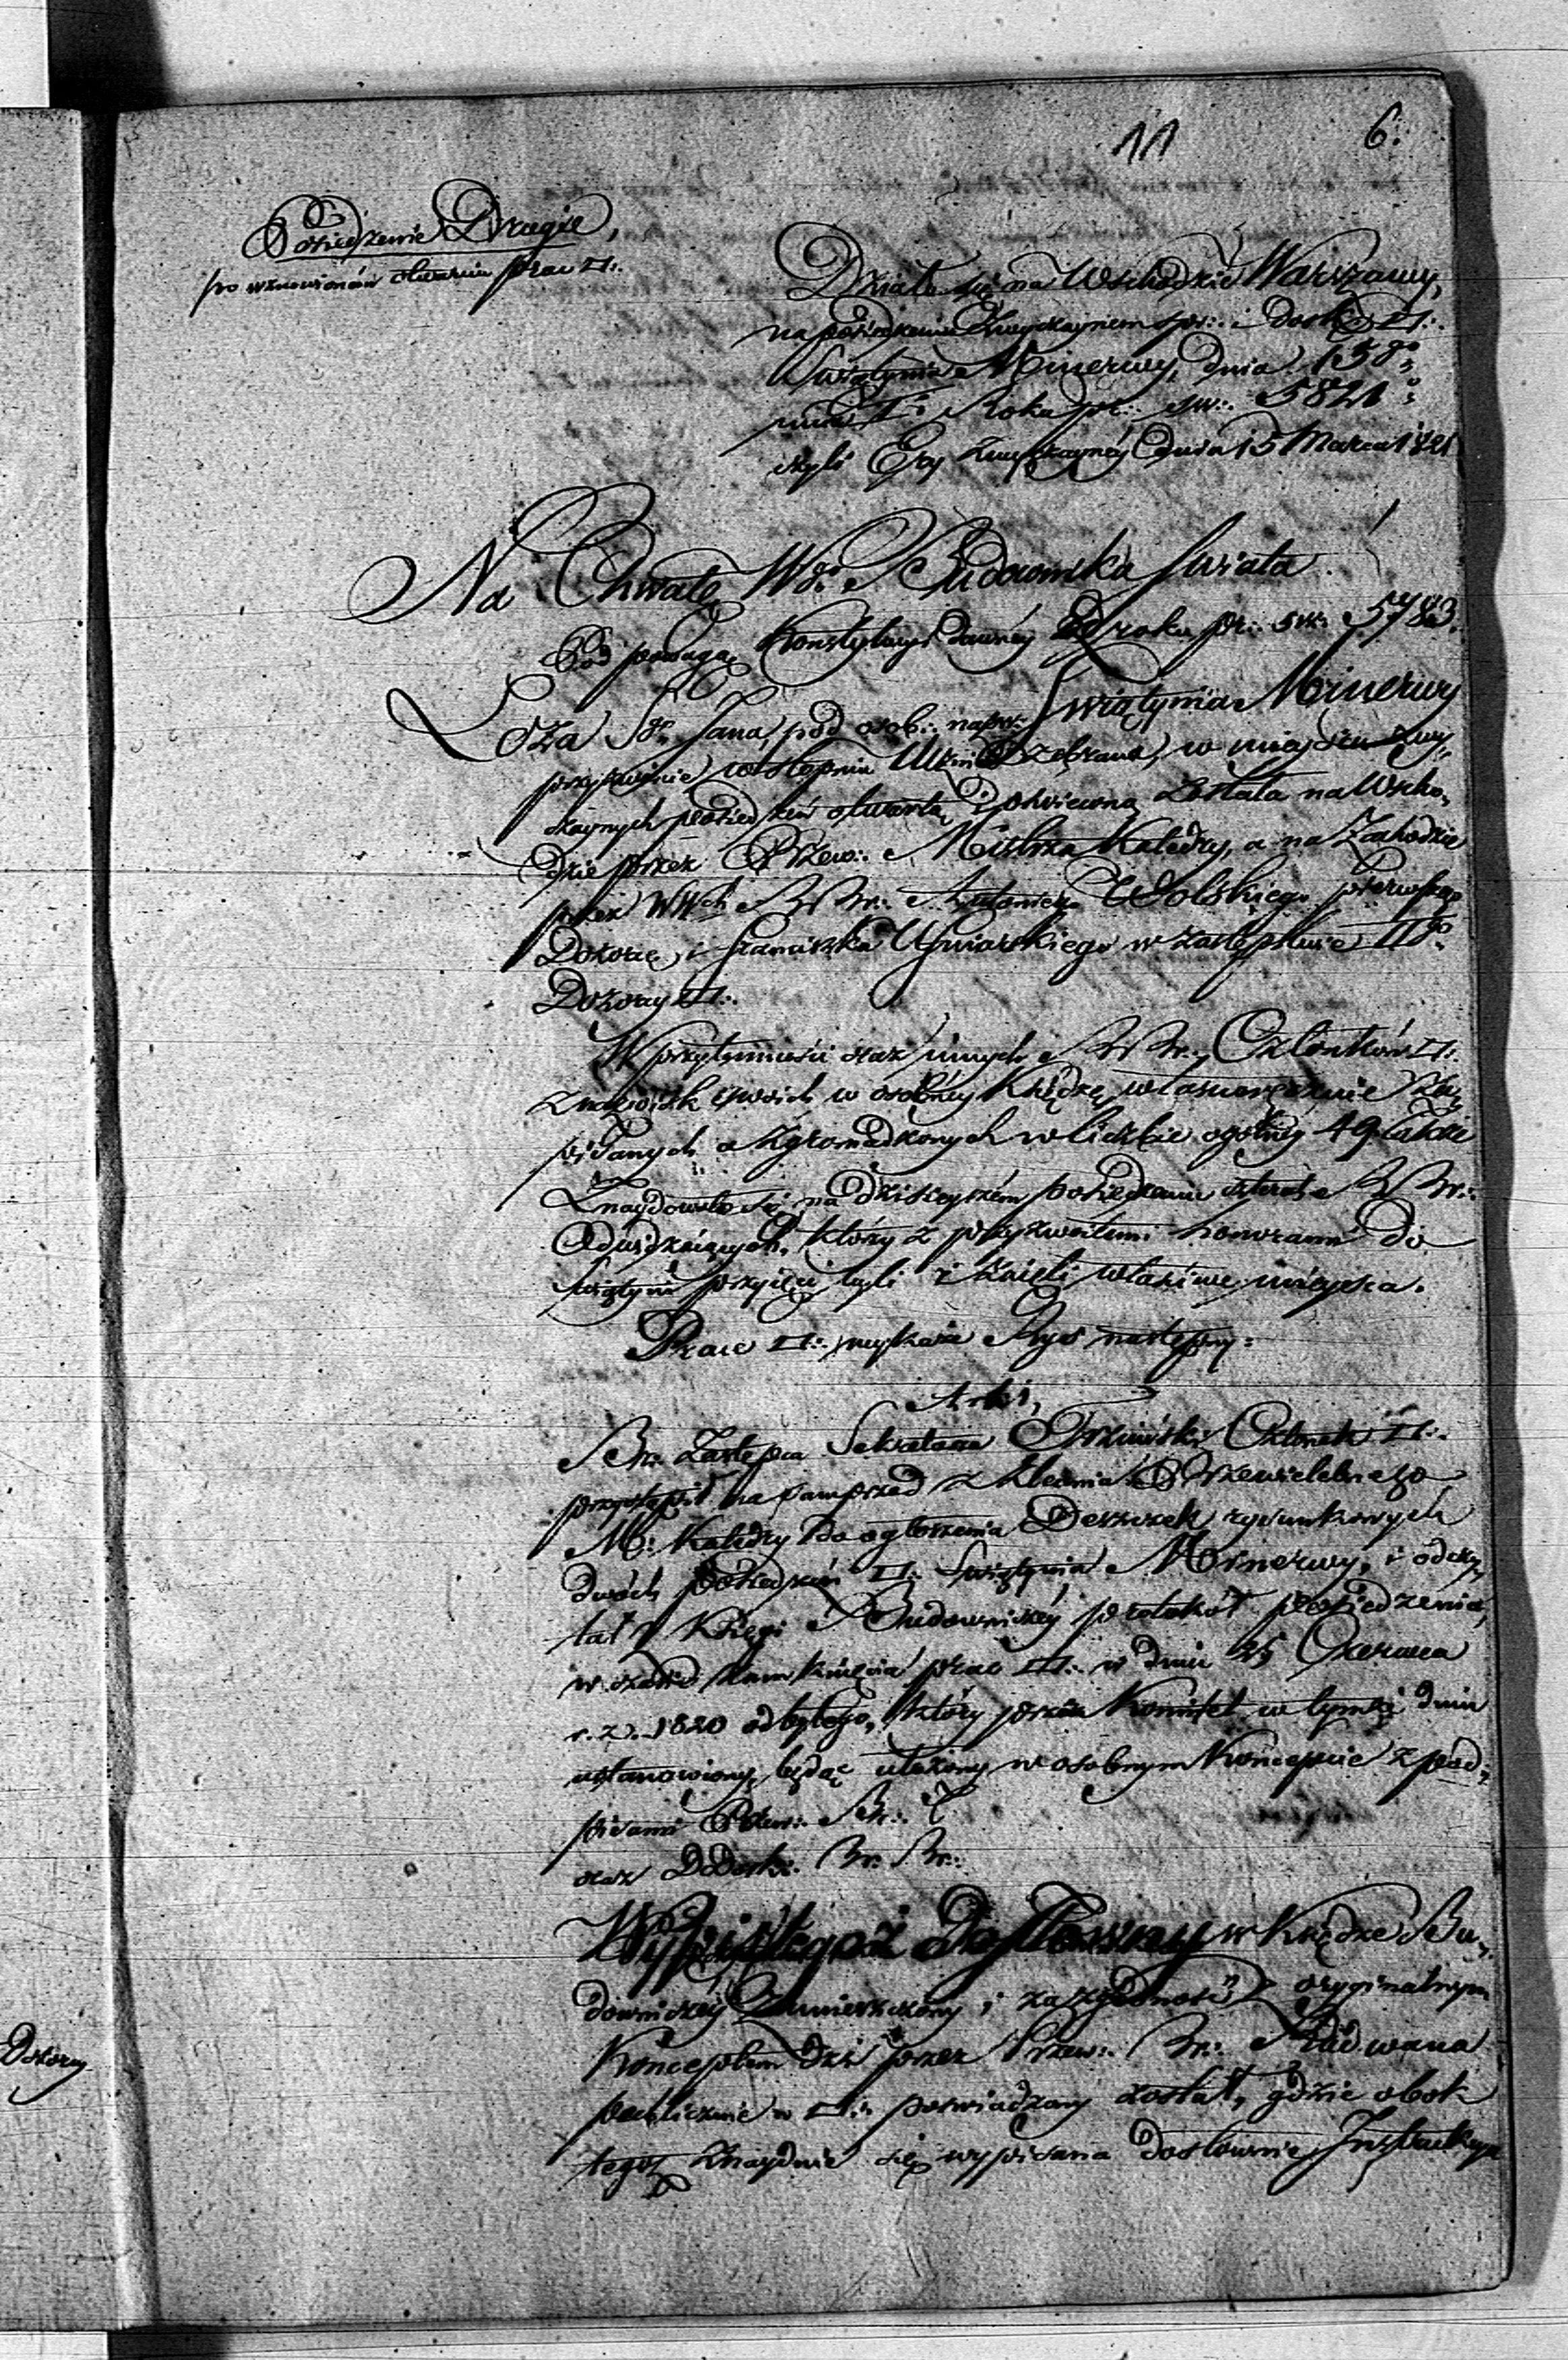 11 6.
Posiedzenie Drugie,
po wznowioném otwarciu prac □:.
Działo się na Wschodzie Warszawy,
na posiedzeniu Zwyczaynem spr:. i dosk:. □:.
Swiątynia Minerwy, dnia 15go
mca Io Roku pr:. św:. 5821o
czyli Ery zwyczaynéy dnia 15 Marca 1821
Na Chwałę Wgo Budownika Swiata!
Pod powagą Konstytucyi dawnéy z roku pr:. św:. 5783.
Loża Sgo Jana, pod osob:. nazw:. Swiątynia Minerwy
przyzwoicie w stopniu Uczni zebrana, w mieyscu zwy,
czaynych posiedzeń otwartą i poświęconą została na Wscho,
dzie przez Przew:. Mistrza Katedry, a na Zachodzie
przez WWch BBr:. Antoniego Wolskiego pierwszego
Dozorcę, i Franciszka Winiarskiego w zastępstwie IIgo
Dozorcy □:.
W przytomności oraz innych BBr:. Członków □:.
znazwisk swoich w osobnéy Księdze własnoręcznie za,
pisanych a zgromadzonych w liczbie ogólnéy 49 także
Znaydowało się na dzisieyszém posiedzeniu BBr:.
Odwidzaiących, którzy z przyzwoitemi honorami do
Swiątyni przyięci byli i zaięli właściwe mieysca.
Prace □:. wykaże Rys następny:
Br:. Zastępca Sekretarza Członek □:.
przystąpił naysamprzód z zlecenia Przewielebnego
M:. Katedry do ogłoszenia Deszczek rysunkowych
dwóch posiedzeń □:. Swiątynia Minerwy, i odczy,
tał z Księgi Budowniczéy protokół posiedzenia,
w czasie zamknięcia prac □:. w dniu 25 Czerwca
r. z. 1820 odbytego, który przez Komitet w tymże dniu
ustanowiony, będąc ułożony w osobnym Koncepcie z pod,
pisami Przew:. Br:.
oraz DDosk:. Br:. Br:.
Wypis tegoż dosłowny w Księdze Bu,
downiczéy zamieszczony i za zgodność z oryginalnym
Konceptem dziś przez Przew:. Br:. Radwana
publicznie w □:. poświadczony został, gdzie obok
tegoż znayduie się wypisana dosłownie Instrukcya
Dozorcy